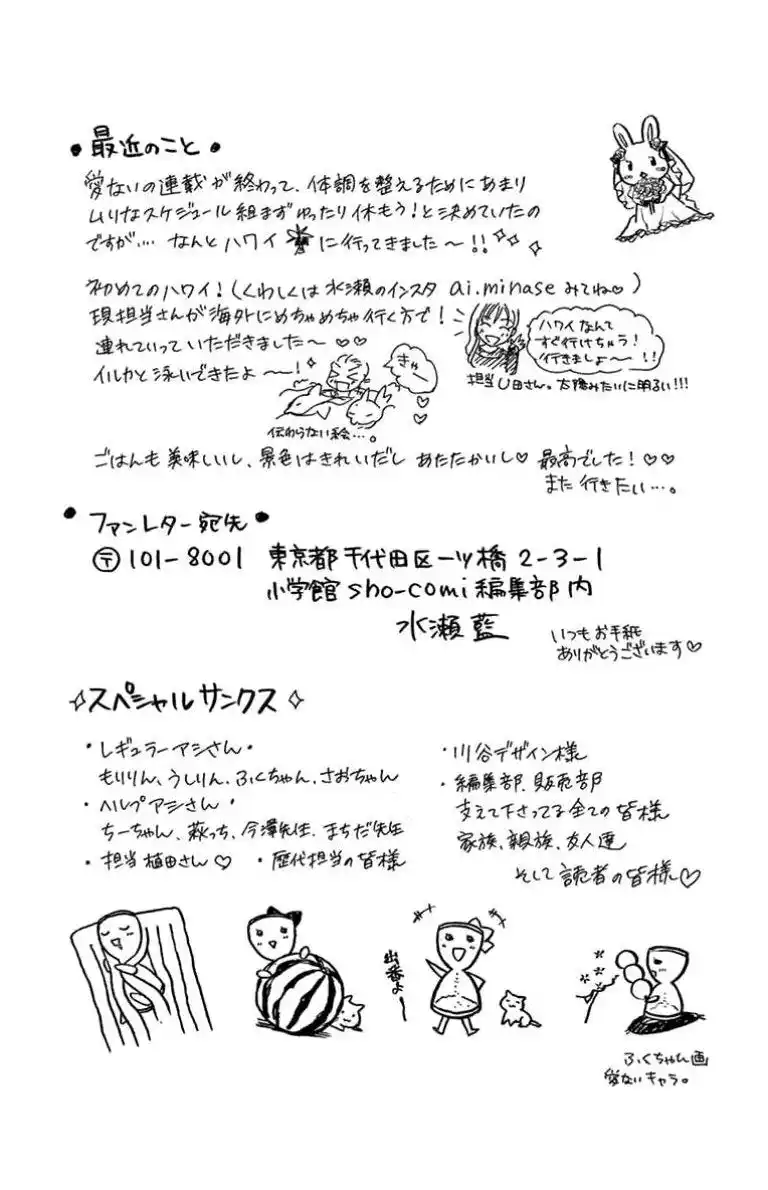 • 最近のこと •
愛ないの連載が終わって、体調を整えるためにあまり
ムリなスケジュール組まずゆったり休もう！と決めていたの
ですが…. なんとハワイ に行ってきました〜!!
初めてのハワイ！(くわしくは水瀬のインスタ ai.minase みてね♡)
現担当さんが海外にめちゃめちゃ行く方で！
連れていっていただきました〜♡♡
イルカと泳いできたよ〜！
ハワイなんて
すぐ行けちゃう！
行きましょ〜!!
担当U田さん。太陽みたいに明るい!!!
きゃー
伝わらない絵…。
ごはんも美味しいし、景色はきれいだし あたたかいし♡ 最高でした！♡♡
また行きたい…。
• ファンレター宛先 •
〒101-8001 東京都千代田区一ツ橋2-3-1
小学館 sho-comi編集部内
水瀬藍
いつもお手紙
ありがとうございます♡
スペシャルサンクス
・レギュラーアシさん・
もりりん、うしりん、ふくちゃん、さおちゃん
・ヘルプアシさん・
ちーちゃん、萩っち、今澤先生、まちだ先生
・担当植田さん♡ ・歴代担当の皆様
・川谷デザイン様
・編集部、販売部
支えて下さってる全ての皆様
家族、親族、友人達
そして読者の皆様♡
出番よ〜
ふくちゃん画
愛ないキャラ。